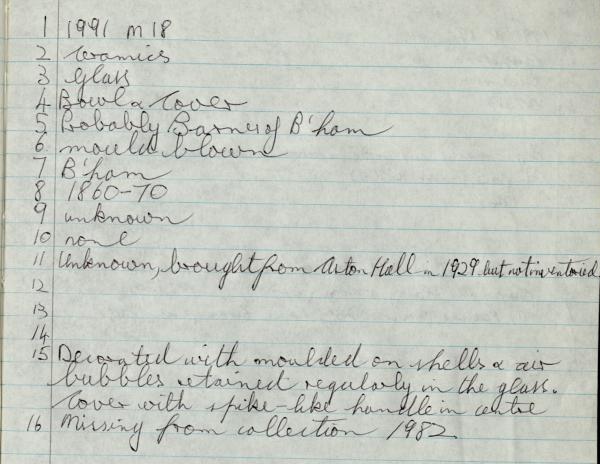 1 1991 M 18
2 Ceramics
3 Glass
4 Bowl & Cover
5 Probably Barnes of B'ham
6 mould blown
7 B'ham
8 1860-70
9 unknown
10 none
11 Unknown, brought from Aston Hall in 1929 but not inventoried
12
13
14
15 Decorated with moulded on shells & air
bubbles retained regularly in the glass.
Cover with spike-like handle in centre
16 Missing from collection 1982